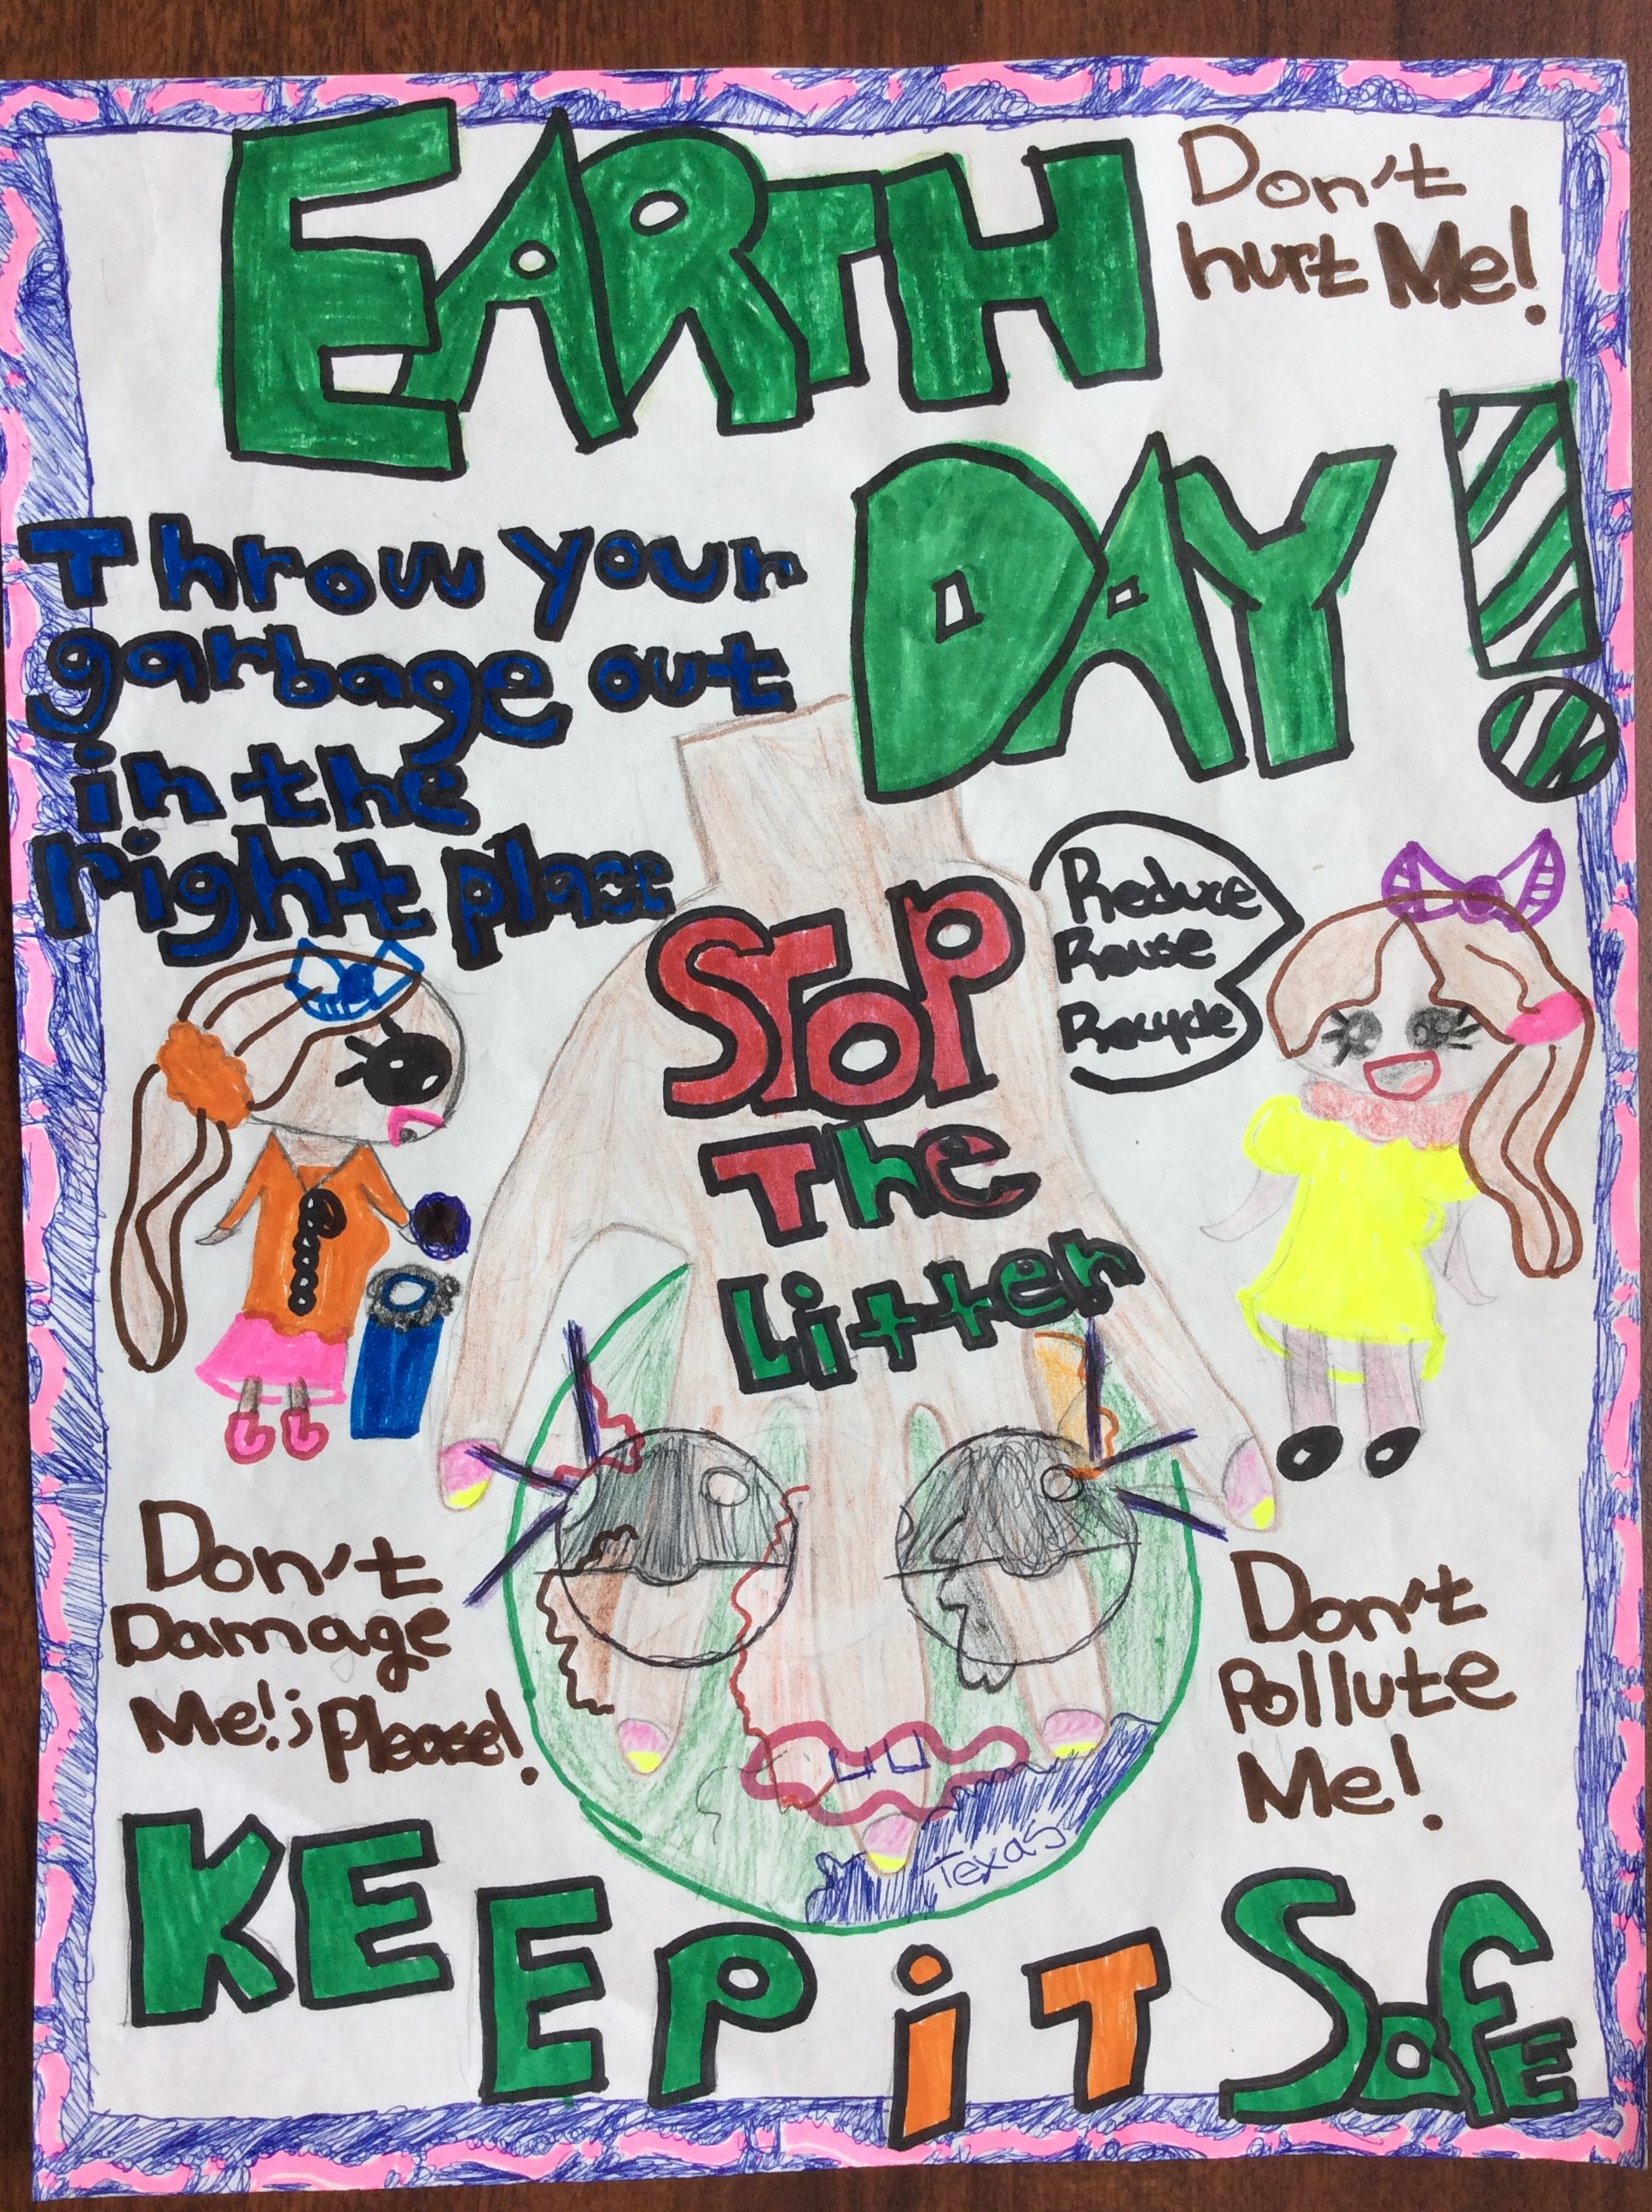 EARTH
DAY!
Don't
hurt Me!
Throw your
garbage out
in the
right place
STOP
The
Litter
Reduce
Reuse
Recycle
Don't
Damage
Me!; Please!
Don't
Pollute
Me!
Texas
KEEP iT SafE